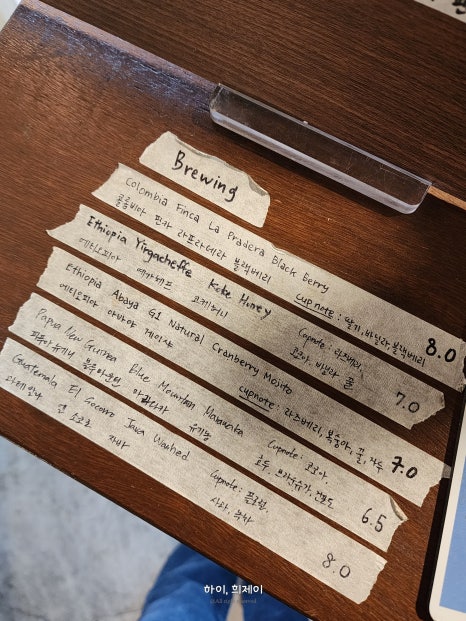 Brewing
Colombia Finca La Pradera Black Berry
콜롬비아 핀카 라프라데라 블랙베리
cup note : 딸기, 바닐라, 블랙베리
8.0
Ethiopia Yirgacheffe Koke Honey
에티오피아 예가체프 코케허니
Cupnote : 라즈베리,
코코아, 바닐라, 꿀
7.0
Ethiopia Abaya G1 Natural Cranberry Mojito
에티오피아 아바야 게이샤
cupnote : 라즈베리, 복숭아, 꿀, 자두
7.0
Papua New Guinea Blue Mountain Marawaka
파푸아뉴기니 블루마운틴 마라와카 유기농
Cupnote : 코코아,
호두, 브라운슈가, 건포도
6.5
Guatemala El Socorro Java Washed
과테말라 엘 소코로 자바
Cupnote : 플로럴,
사과, 녹차
8.0
하이, 희제이